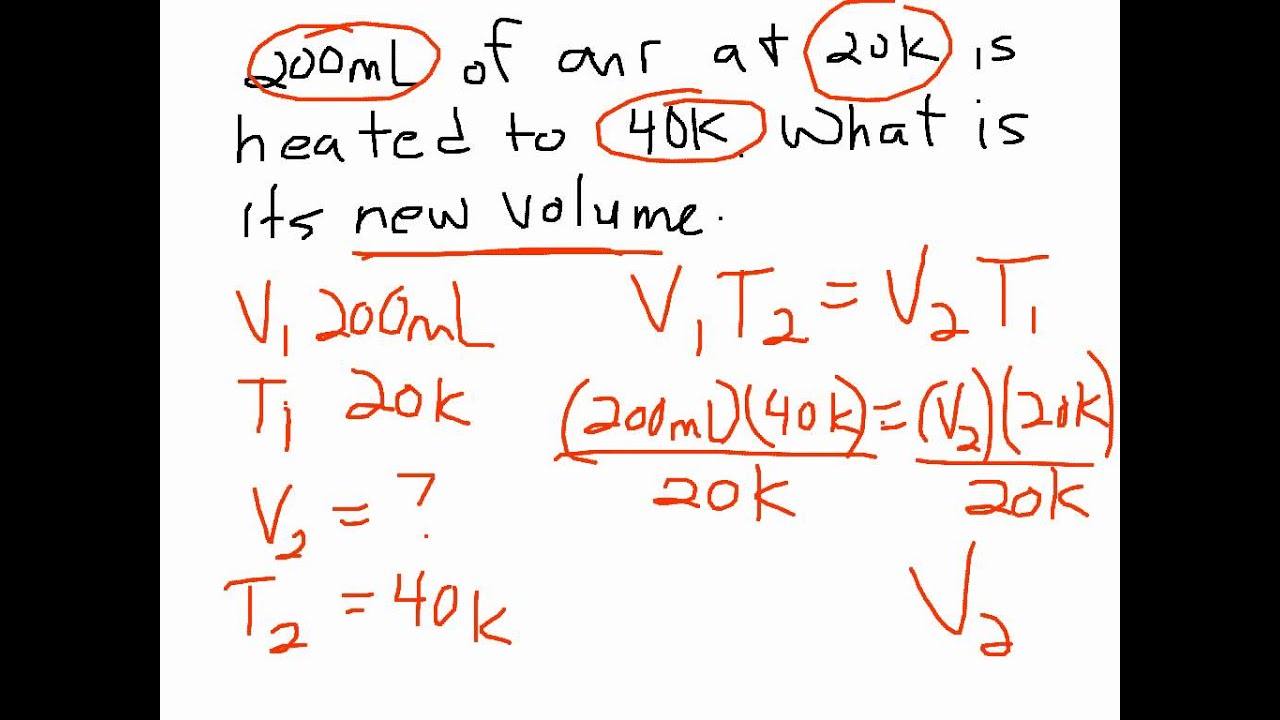 200mL of air at 20K is
heated to 40K. What is
its new volume.
V₁ 200mL
T₁ 20K
V₂ = ?
T₂ = 40K
V₁T₂ = V₂T₁
(200mL)(40K) = (V₂)(20K)
20K 20K
V₂